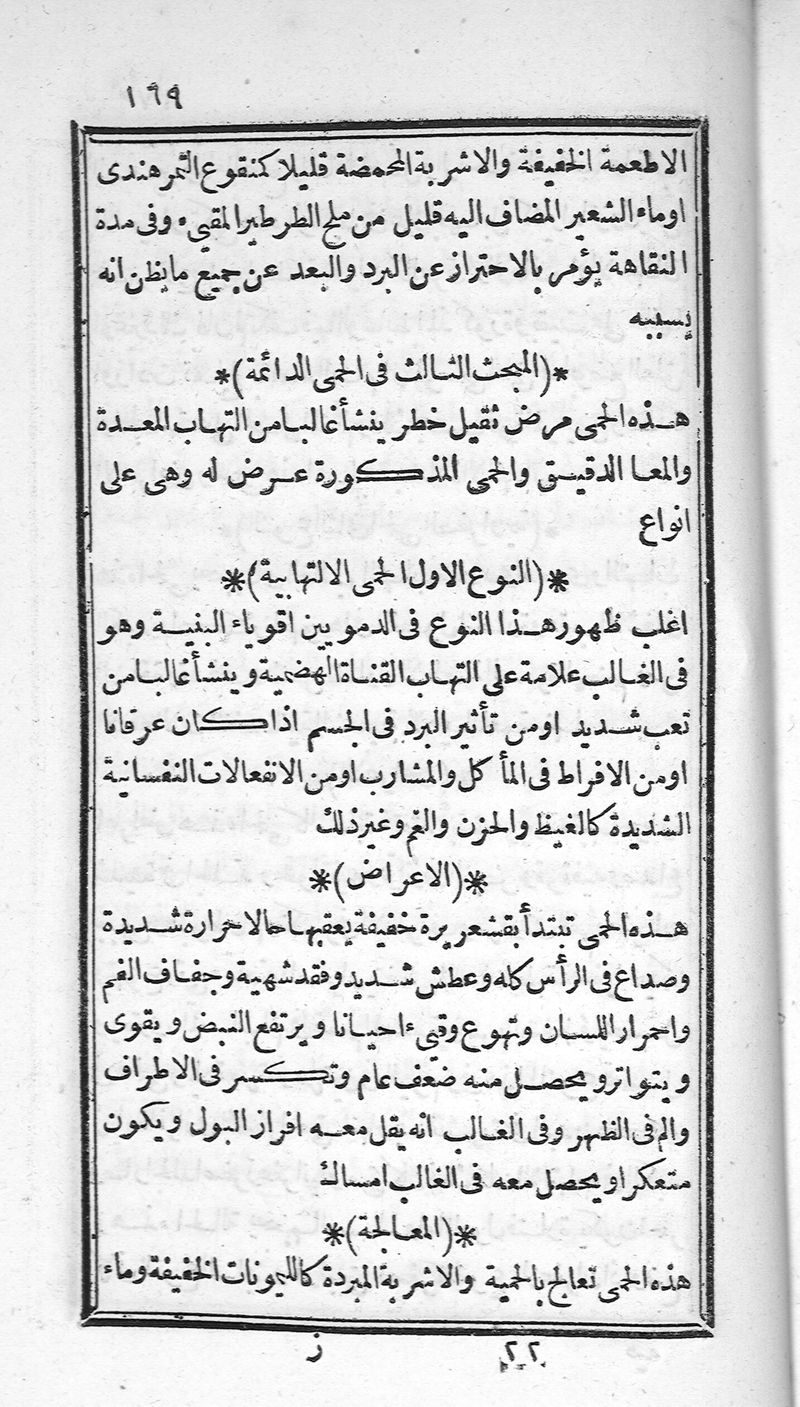 ١٦٩
الاطعمة الخفيفة والاشربة المحمضة قليلا كمنقوع التمر هندى
اوماء الشعير المضاف اليه قليل من ملح الطرطير المقيىء وفى مدة
النقاهة يؤمر بالاحتراز عن البرد والبعد عن جميع مايظن انه
يسببه
*(المبحث الثالث فى الحمى الدائمة)*
هذه الحمى مرض ثقيل خطر ينشأ غالبا من التهاب المعدة
والمعا الدقيق والحمى المذكورة عرض له وهى على
انواع
*(النوع الاول الحمى الالتهابية)*
اغلب ظهور هذا النوع فى الدمويين اقوياء البنية وهو
فى الغالب علامة على التهاب القناة الهضمية وينشأ غالبا من
تعب شديد اومن تأثير البرد فى الجسم اذا كان عرقانا
اومن الافراط فى المأكل والمشارب اومن الانفعالات النفسانية
الشديدة كالغيظ والحزن والغم وغير ذلك
*(الاعراض)*
هذه الحمى تبتدأ بقشعريرة خفيفة يعقبها حالا حرارة شديدة
وصداع فى الرأس كله وعطش شديد وفقد شهية وجفاف الفم
واحمرار اللسان وتهوع وقىء احيانا ويرتفع النبض ويقوى
ويتواتر ويحصل منه ضعف عام وتكسر فى الاطراف
والم فى الظهر وفى الغالب انه يقل معه افراز البول ويكون
متعكرا ويحصل معه فى الغالب امساك
*(المعالجة)*
هذه الحمى تعالج بالحمية والاشربة المبردة كالليمونات الخفيفة وماء
٢٢ ز